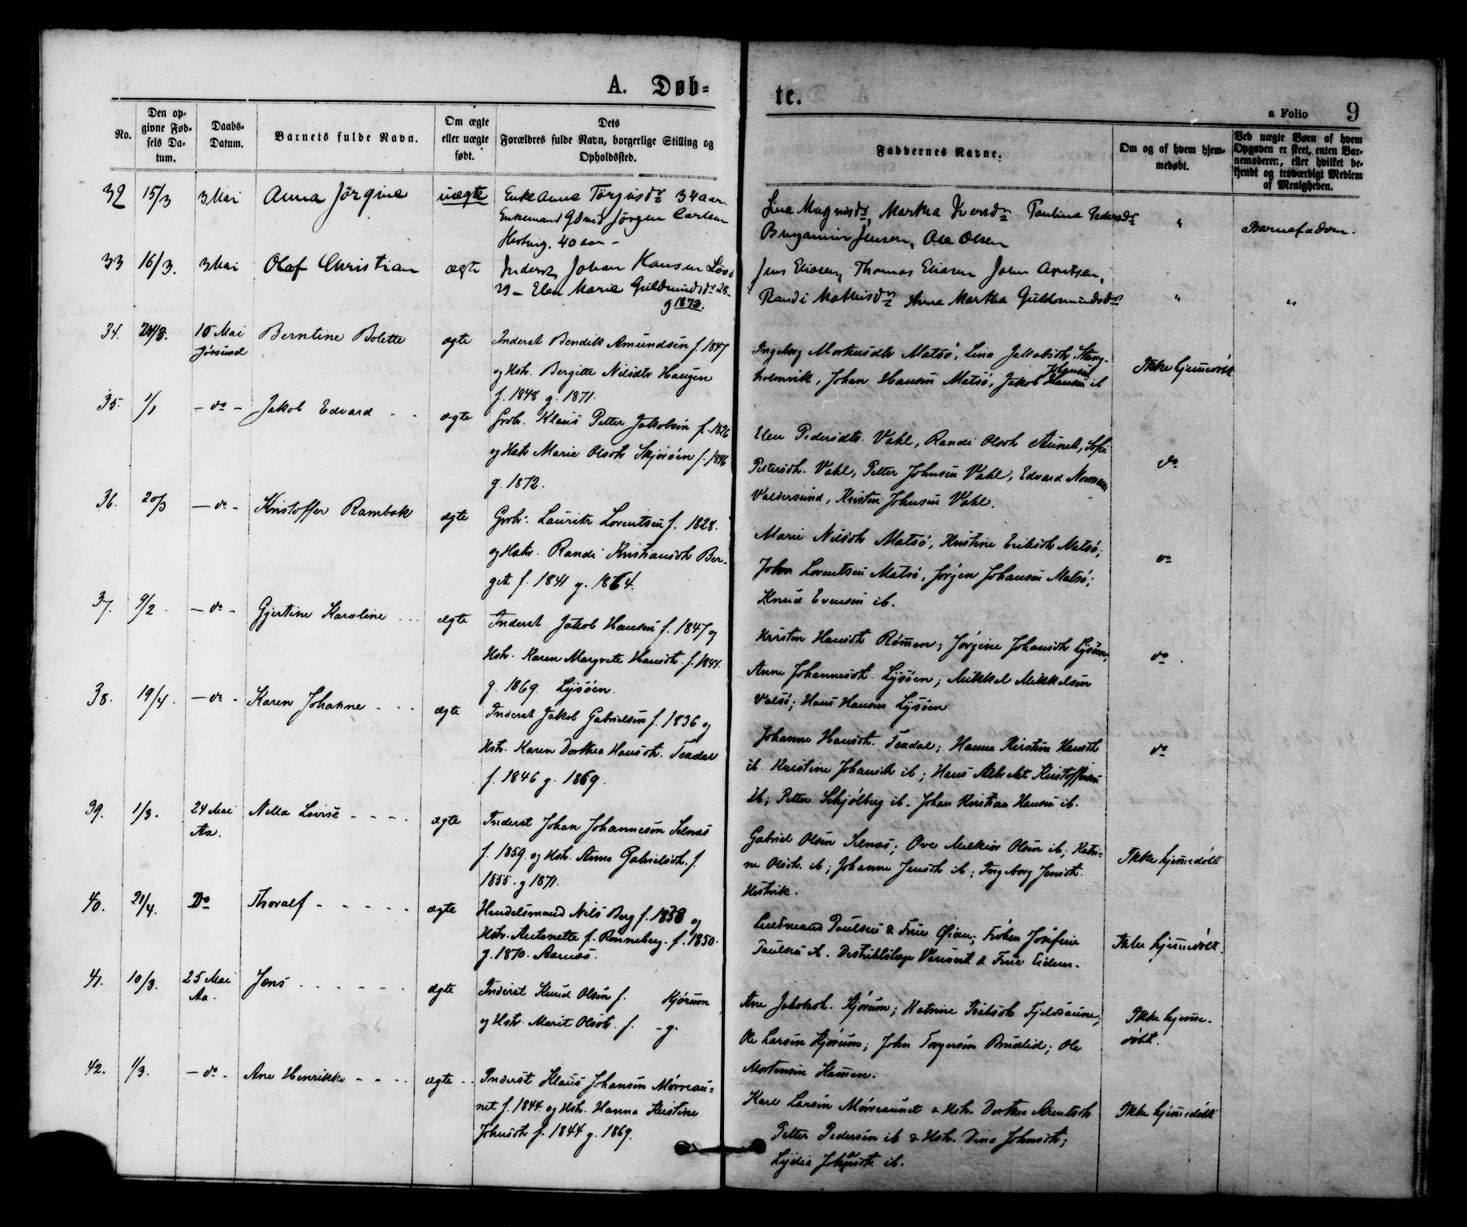 A. Døb=
te.
a Folio 9
No.
Den op-
givne Fød-
sels Da-
tum.
Daabs-
Datum.
Barnets fulde Navn.
Om ægte
eller uægte
født.
Dets
Forældres fulde Navn, borgerlige Stilling og
Opholdssted.
Faddernes Navne.
Om og af hvem hjem-
medøbt.
Ved uægte Børn af hvem
Opgaven er skeet, enten Bar-
nemoderen, eller hvilket be-
kjendt og troværdigt Medlem
af Menigheden.
32 15/3 3 Mai Anna Jørgine uægte
Enke Anna Torgersdr 34 aar
Enkemand Jørgen Carlsen
40 aar -
Lina Magnusdr, Martha Iversdr Paulina Pedersdr
Benjamin Jensen, Ole Olsen
" Barnefaderen.
33 16/3. 3 Mai Olaf Christian ægte
Inderst Johan Hansen
29 - Elen Maria Guldmundsdr 28
g 1872.
Jens Eliasen, Thomas Eliasen John
Randi Mathisdr Anna Martha Guldmundsdr
" "
34. 24/3. 10 Mai Berntine Bolette ægte
Jøssund
Inderst Bendikt Amundsen f. 1847
og Hst. Bergitte Nilsdtr Haugen
f. 1848 g. 1871.
Ingeborg Morkusdtr Matsö, Lina Jakobsdt.
holmvik, Johan Hansen Matsö, Jakob Hansen ib
Ikke hjemmedöbt
35. 1/1 - do - Jakob Edvard - - ægte
Grdb. Klaus Petter Jakobsen f. 1826
og Hst. Marie Olsdt. f. 1846
g. 1872.
Elen Pedersdtr. Vahl, Randi Olsdt Aunet, Sofie
Petersdt. Vahl, Petter Johnsen Vahl, Edvard Normann
Valdersund, Kristen Johnsen Vahl.
do
36. 20/3 - do - Kristoffer Rambek ægte
Grdb. Lauritz Lorentsen f. 1828.
og Hst. Randi Kristiansdt Ber-
get f. 1841 g. 1864.
Marie Nilsdt Matsö, Kristine Eriksdt Matsö,
John Lorentsen Matsö, Jørgen Johansen Matsö;
Knud Evensen ib.
do
37. 9/2 - do - Gjertine Karoline ... ægte
Inderst Jakob Hansen f. 1847 og
Hst. Karen Margrete Hansdt. f. 1844
g. 1869. Lysöen.
Kristen Hansdt Rømen; Jørgine Johansdt Lysöen,
Anne Johannesdt. Lysöen; Mikkel Mikkelsen
Valsö; Hans Hansen Lysöen
do
38. 19/4 - do - Karen Johanne - - - ægte
Inderst Jakob Gabrielsen f. 1836 og
Hst. Karen Dorthea Hansdt. Texdal
f. 1846 g. 1869.
Johanne Hansdt. Texdal; Hanna Kirstin Hansdt
ib. Kristine Johansdt ib; Hans Albrekt Kristoffersen
ib; Petter Schjölberg ib. Johan Kristian Hansen ib.
do
39. 1/3. 24 Mai Nella Lovise - - - - ægte
Aa.
Inderst Johan Johannesen Selnæs
f. 1859. og Hst. Anna Gabrielsdt. f.
1855. g 1871.
Gabriel Olsen Selnæs; Ove Melkior Olsen ib; Katri-
ne Olsdt. ib; Johanna Jensdt ib; Ingeborg Jensdt.
Ikke hjemmedöbt
40. 21/4. Do Thoralf - - - - - ægte
Handelsmand Nils Berg f. 1838 og
Hst. Antonette f. Rønneberg. f. 1850.
g. 1870. Aarnæs.
Lensmand Paulsen & Frue Frøken Josefine
Paulsen ib. Distriktslæge & Frue Eidem.
Ikke hjemmedöbt.
41. 10/3. 25 Mai Jens - - - - - - ægte
Aa.
Inderst Knud Olsen f. Kjörum
og Hst. Marit Olsdt. f. - g.
Ane Jakobsdt. Kjörum; Katrine
Ole Larsen Kjörum; John Torgersen Brudlid; Ole
Mortensen Hammen.
Ikke hjemme-
döbt.
42. 1/3. - do - Ane Henrikke - - - - ægte - -
Inderst Klaus Johansen Mørreau-
net f. 1844 og Hst. Hanna Kristine
Johnsdt f. 1844 g. 1869.
Karl Larsen Mørreaunet & Hst. Dorthea Arentsdt
Petter Pedersen ib & Hst. Dina Johnsdt;
Lydia ib.
Ikke hjemmedöbt